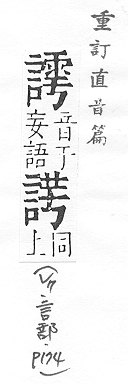 重訂直音篇
謣
音于
妄語
同
上
言部·P174)